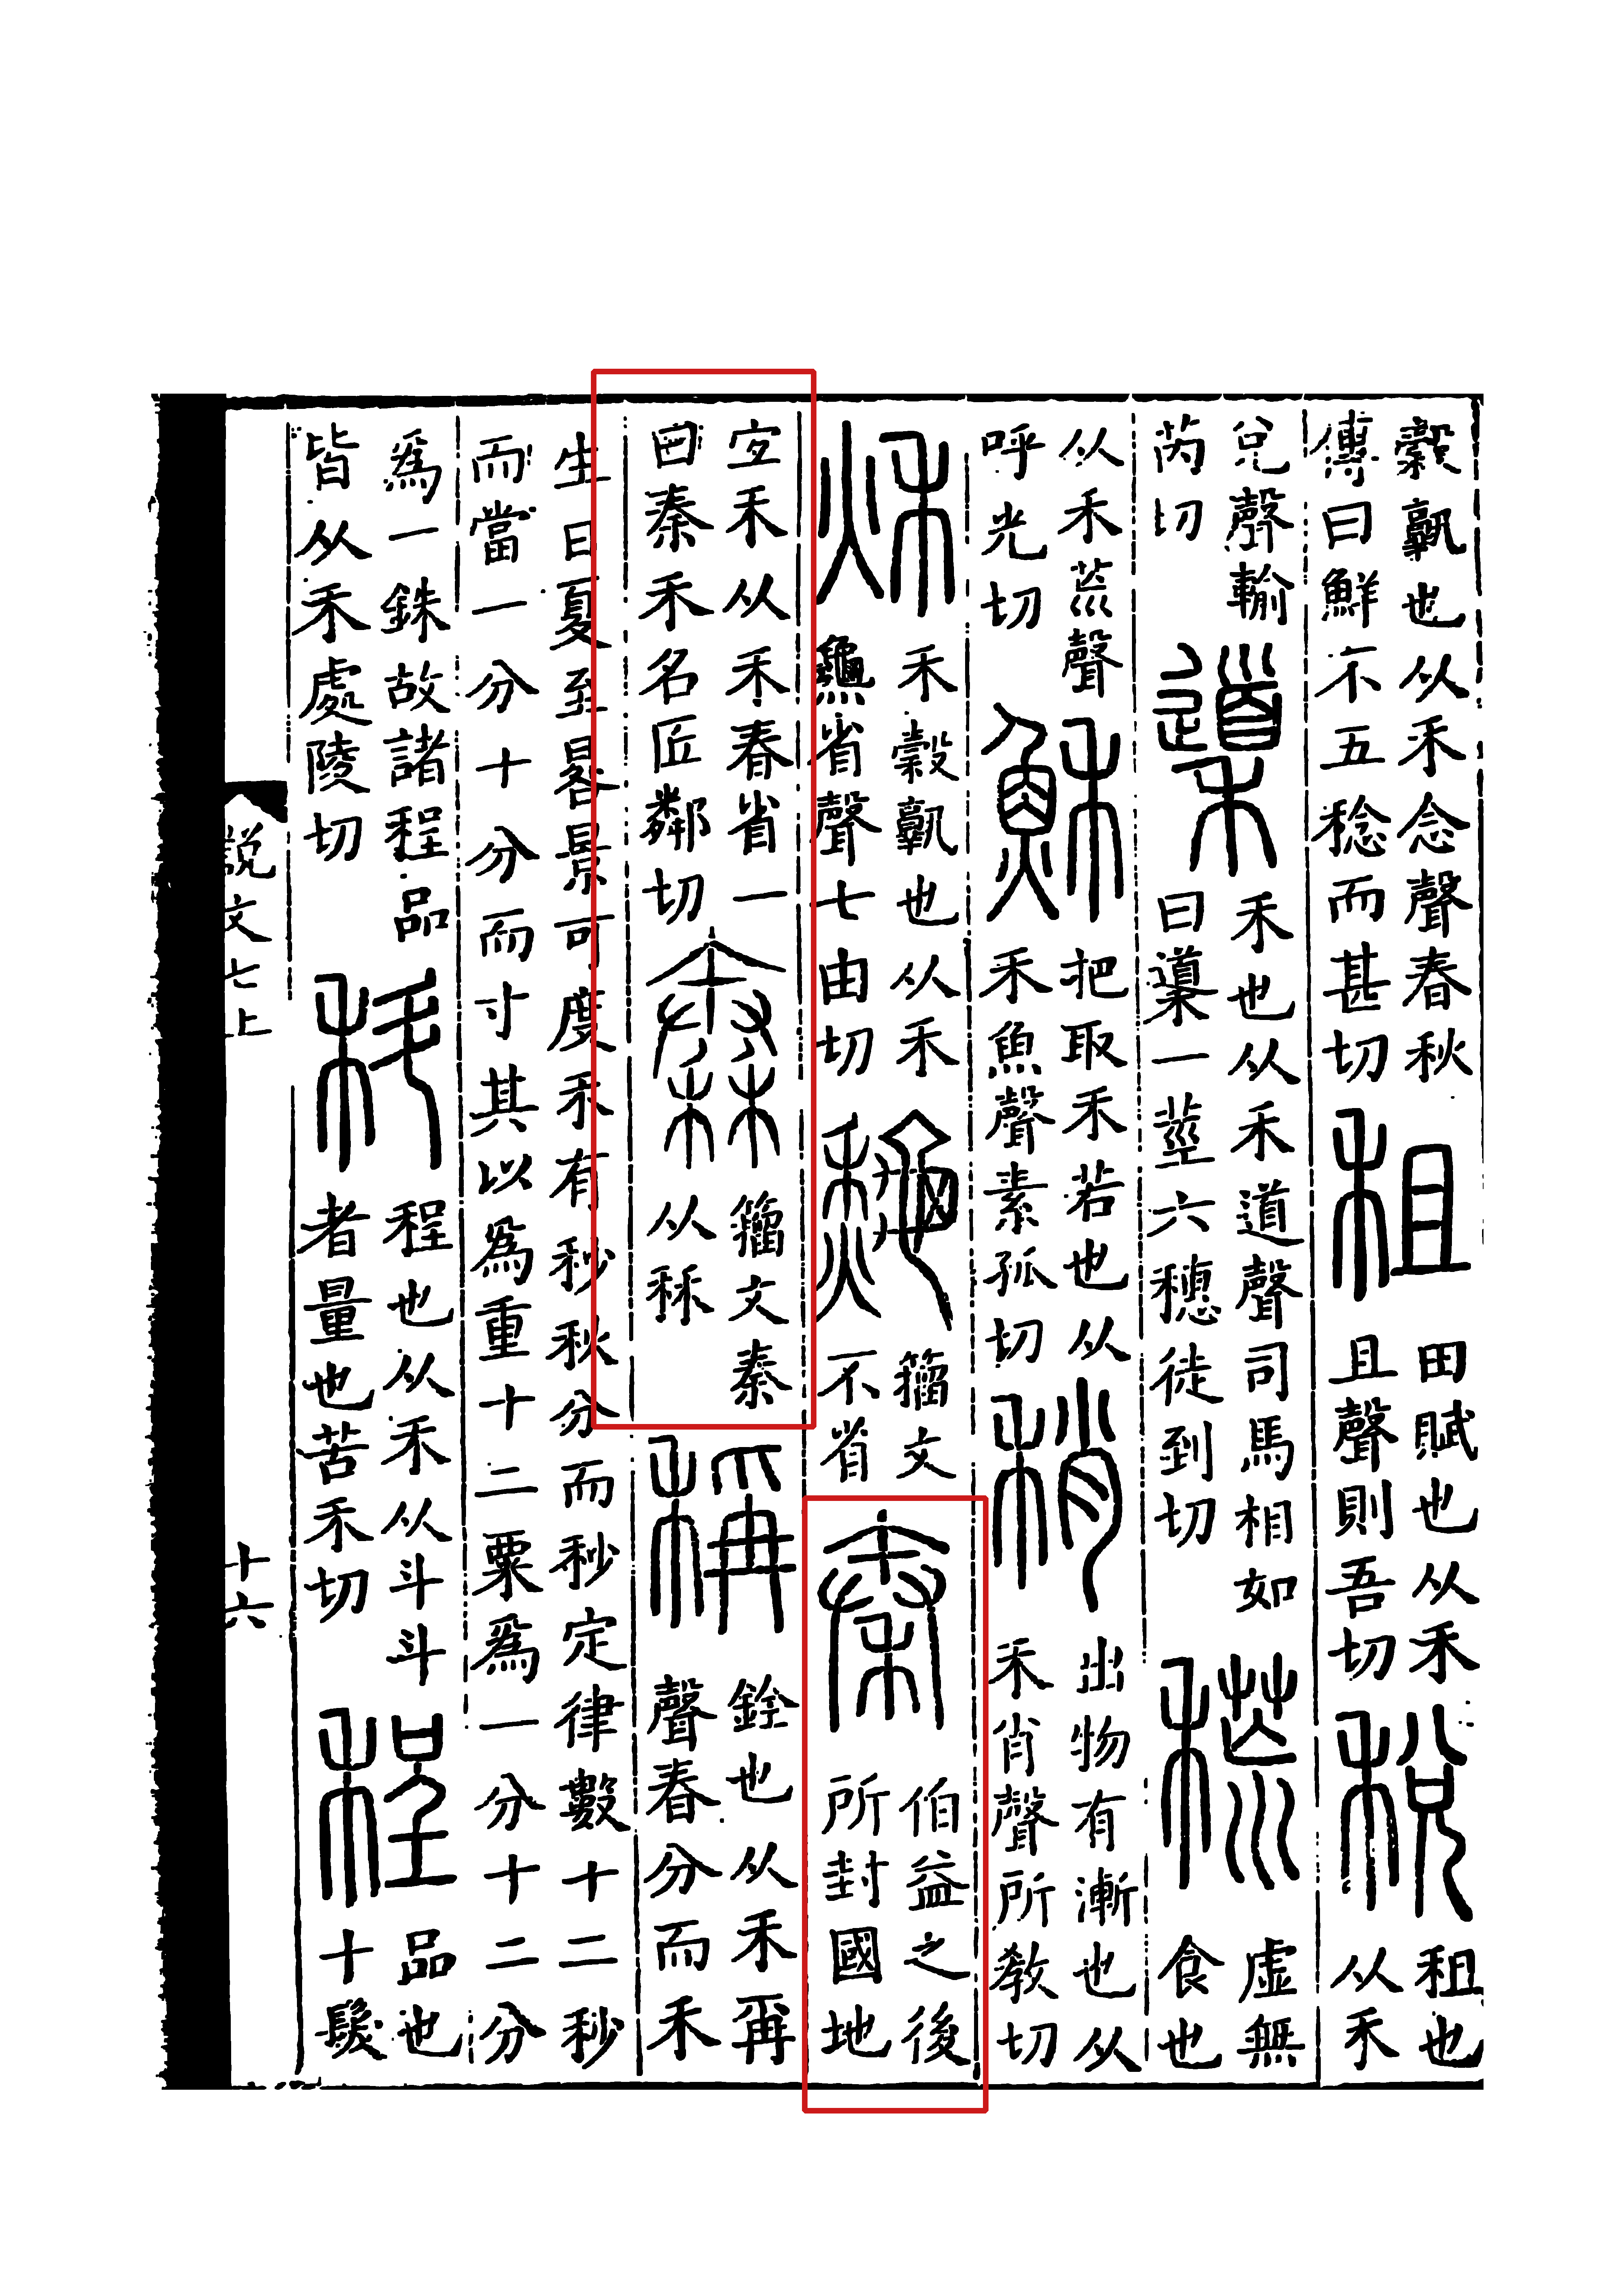 穀孰也从禾念聲春秋
傳曰鮮不五稔而甚切
租
田賦也从禾
且聲則吾切
稅
租也
从禾
兌聲輸
芮切
䆃
禾也从禾道聲司馬相如
曰䆃一莖六穗徒到切
䅣
虛無
食也
从禾荒聲
呼光切
穌
把取禾若也从
禾魚聲素孤切
稍
出物有漸也从
禾肖聲所教切
秋
禾穀孰也从禾
𪚰省聲七由切
𥤚
籒文
不省
秦
伯益之後
所封國地
宜禾从禾舂省一
曰秦禾名匠鄰切
𥢮
籒文秦
从秝
稱
銓也从禾爯
聲春分而禾
生日夏至晷景可度禾有秒秋分而秒定律數十二秒
而當一分十分而寸其以爲重十二粟爲一分十二分
爲一銖故諸程品
皆从禾處陵切
科
程也从禾从斗斗
者量也苦禾切
程
品也
十髮
說文七上
十六